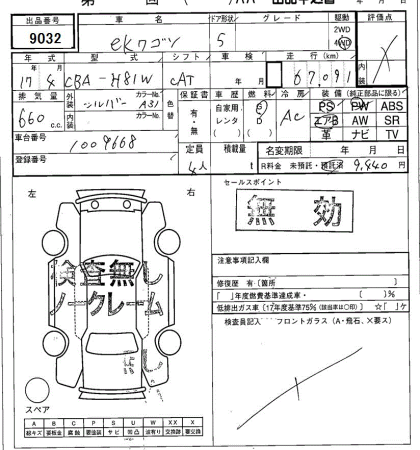 出品番号 車名 ドア形状 グレード 駆動 評価点
9032 eKワゴン 5 2WD 4WD
年式 型式 シフト 車検 走行(km) 内装
17年 4月 CBA-H81W CAT 年 月 67,091
排気量 外装 シルバー カラーNo. A31 色替 保証書 車歴 燃料 冷房 装備(純正部品に限る)
660 c.c. 内装 カラーNo. 有・無 自家用 レンタ AC PS PW ABS
エアB AW SR
革 ナビ TV
車台番号 1007668
登録番号 定員 4人 積載量 t 名変期限 年 月 日
R料金 未預託・預託済 9,440円
左 右 セールスポイント
無効
検査無し
ノークレーム
注意事項記入欄
修復歴 有(箇所 )
「 」年度燃費基準達成車・ 〔 〕%
低排出ガス車〔17年度基準75%(該当車は○印)〕 ☆「 」ケ
検査員記入 フロントガラス(A・飛石、X要ス)
スペア
A B C P S U W XX X